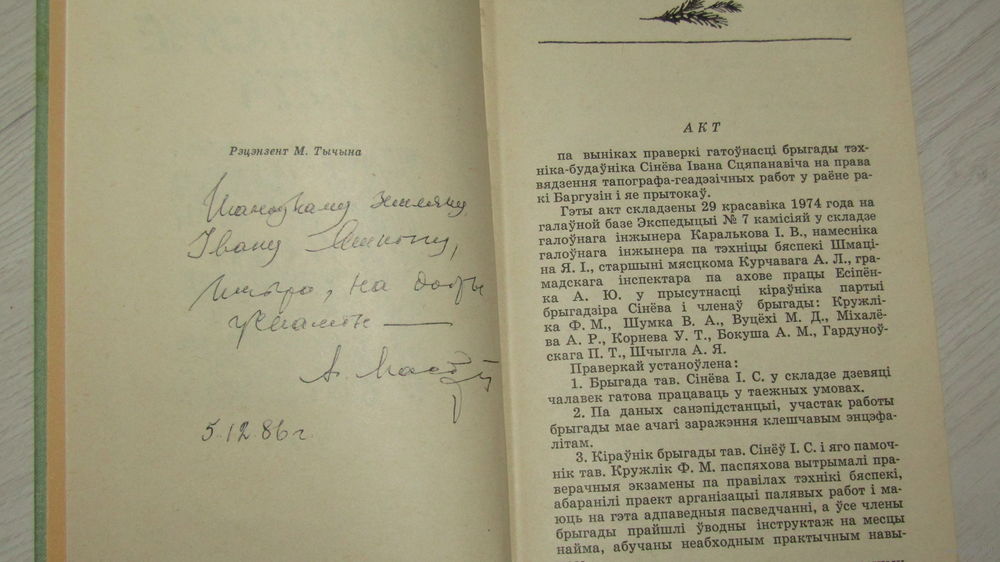 Рэцэнзент М. Тычына
Шаноўнаму земляку
Івану
шчыра, на добры
ўспамін —
А.
5.12.86 г.
АКТ
па выніках праверкі гатоўнасці брыгады тэх-
ніка-будаўніка Сінёва Івана Сцяпанавіча на права
вядзення тапографа-геадэзічных работ у раёне ра-
кі Баргузін і яе прытокаў.
Гэты акт складзены 29 красавіка 1974 года на
галаўной базе Экспедыцыі № 7 камісіяй у складзе
галоўнага інжынера Каралькова І. В., намесніка
галоўнага інжынера па тэхніцы бяспекі Шмаці-
на Я. І., старшыні мясцкома Курчавага А. Л., гра-
мадскага інспектара па ахове працы Есіпён-
ка А. Ю. у прысутнасці кіраўніка партыі
брыгадзіра Сінёва і членаў брыгады: Кружлі-
ка Ф. М., Шумка В. А., Вуцёхі М. Д., Міхалё-
ва А. Р., Корнева У. Т., Бокуша А. М., Гардуноў-
скага П. Т., Шчыгла А. Я.
Праверкай устаноўлена:
1. Брыгада тав. Сінёва І. С. у складзе дзевяці
чалавек гатова працаваць у таежных умовах.
2. Па даных санэпідстанцыі, участак работы
брыгады мае ачагі заражэння клешчавым энцэфа-
літам.
3. Кіраўнік брыгады тав. Сінёў І. С. і яго памоч-
нік тав. Кружлік Ф. М. паспяхова вытрымалі пра-
верачныя экзамены па правілах тэхнікі бяспекі,
абаранілі праект арганізацыі палявых работ і ма-
юць на гэта адпаведныя пасведчанні, а ўсе члены
брыгады прайшлі ўводны інструктаж на месцы
найма, абучаны неабходным практычным навы-